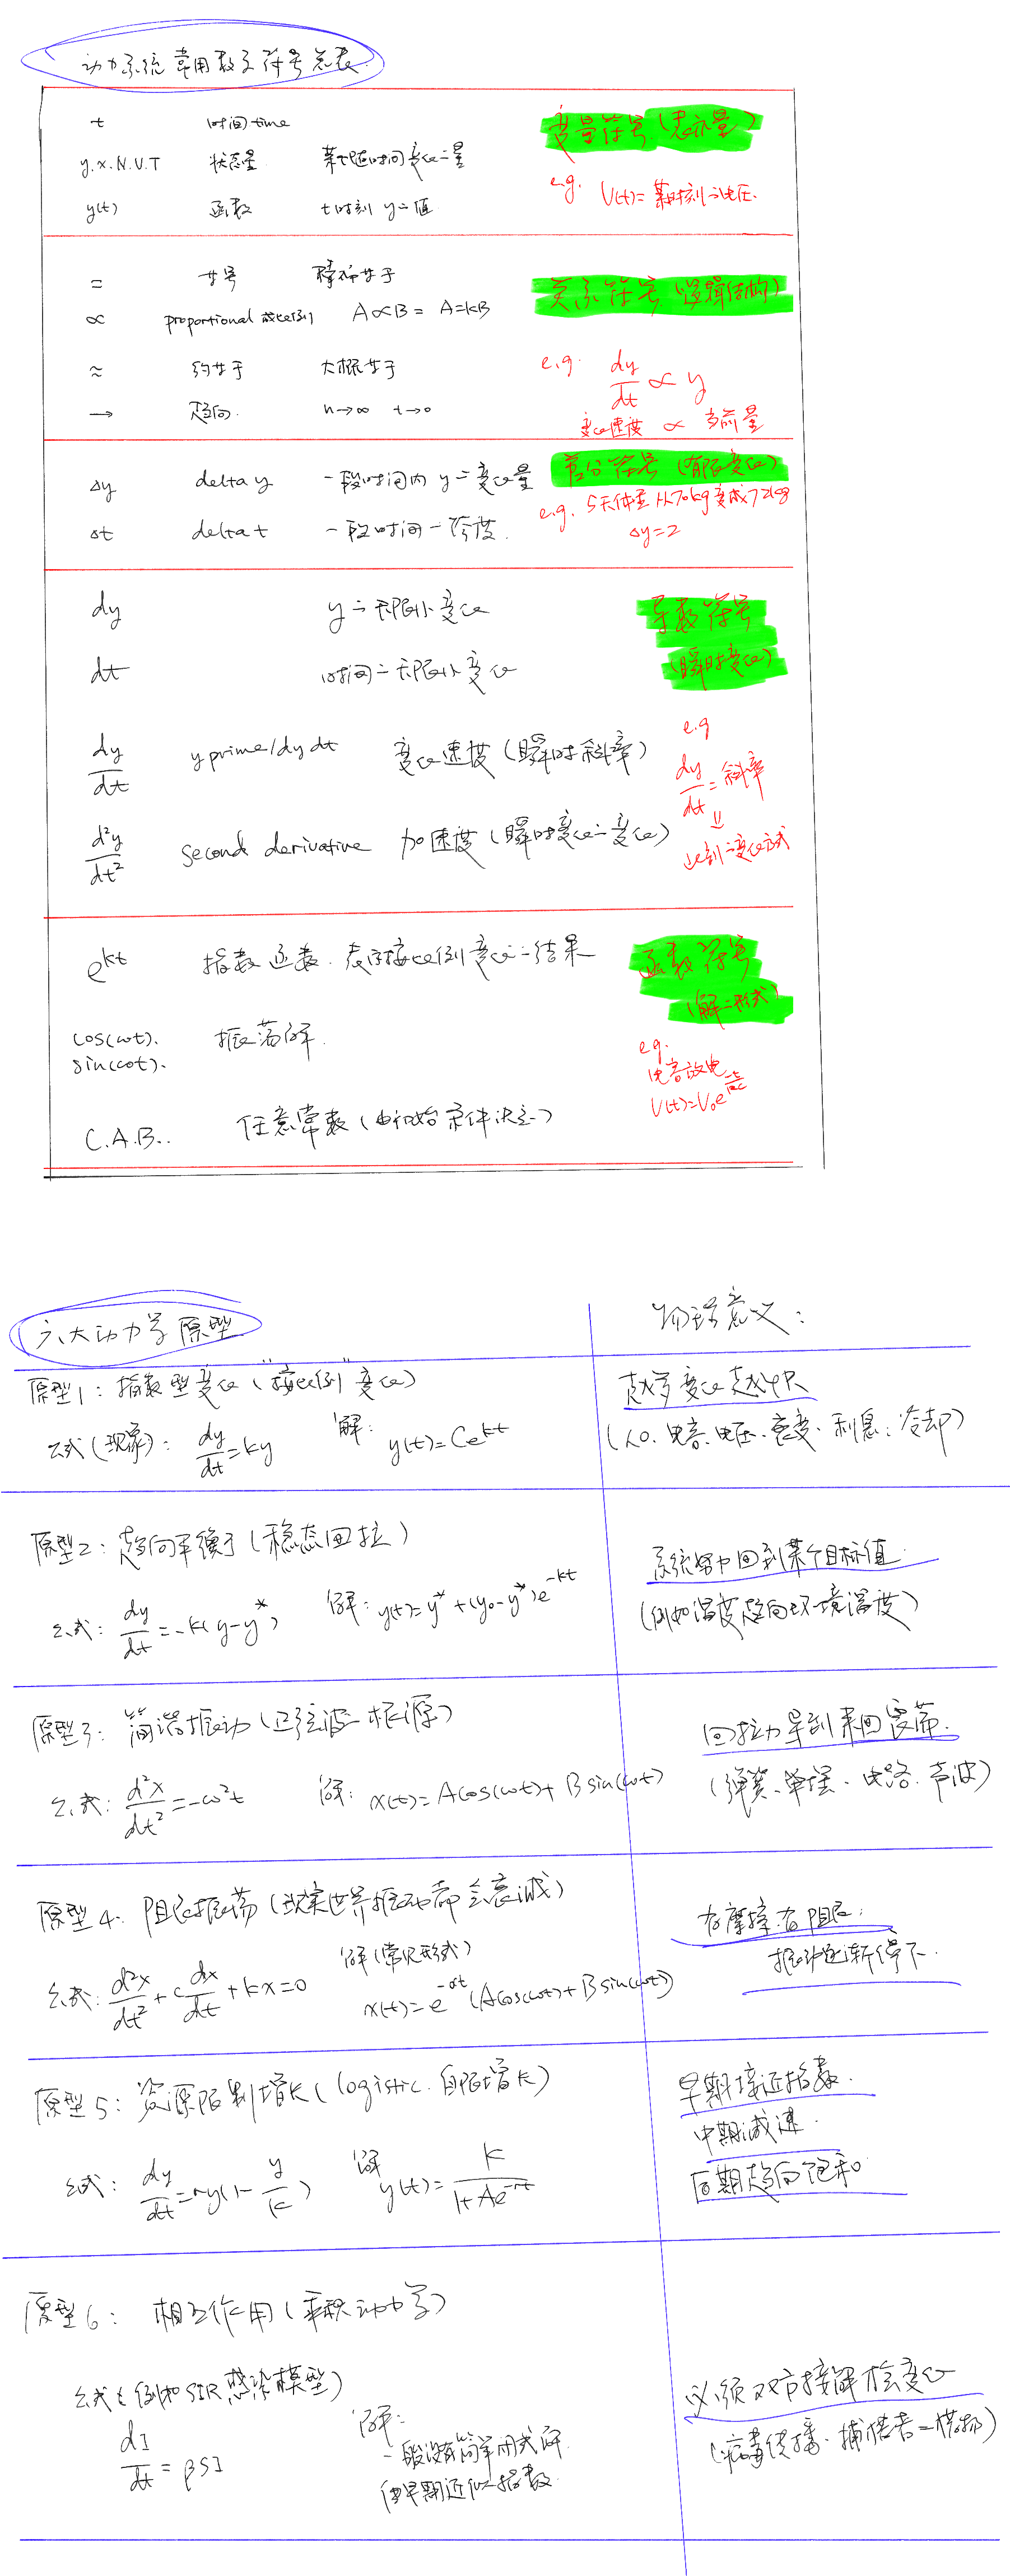 动力系统常用数学符号总表
t 时间 time 变量符号(表示量)
y.x.N.V.T 状态量 某个随时间变化的量
e.g. V(t)=某时刻的电压.
y(t) 函数 t时刻y的值
= 等号 精确等于 关系符号(逻辑结构)
∝ proportional 成比例 A∝B = A=kB
≈ 约等于 大概等于 e.g. dy/dt ∝ y
→ 趋向. n→∞ t→0 变化速度 ∝ 当前量
Δy delta y 一段时间内y的变化量 差分符号(有限变化)
e.g. 5天体重从70kg变成72kg
Δt delta t 一段时间的跨度. Δy=2
dy y的无限小变化 导数符号
dt 时间的无限小变化 (瞬时变化)
e.g
dy/dt y prime/dy dt 变化速度(瞬时斜率) dy/dt=斜率
d²y/dt² second derivative 加速度(瞬时变化的变化)
此刻的变化方式
e^kt 指数函数.表示按比例变化的结果 函数符号
(解的形式)
cos(ωt). 振荡解.
sin(ωt).
e.g.
电容放电
V(t)=V₀e
C.A.B.. 任意常数(由初始条件决定)
六大动力学原型 物理意义:
原型1: 指数型变化("按比例"变化) 越多变化越快
公式(现象): dy/dt=ky 解: y(t)=Ce^kt (人口.电容.电压.衰变.利息.冷却)
原型2: 趋向平衡(稳态回拉) 系统努力回到某个目标值.
公式: dy/dt=-k(y-y*) 解: y(t)=y*+(y₀-y*)e^-kt (例如温度趋向环境温度)
原型3: 简谐振动(正弦波的根源) 回拉力导致来回震荡.
公式: d²x/dt²=-ω²t 解: x(t)=Acos(ωt)+Bsin(ωt) (弹簧.单摆.电路.声波)
原型4. 阻尼振荡(现实世界振动都会衰减) 有摩擦.有阻尼.
振动逐渐停下.
公式: d²x/dt²+c dx/dt+kx=0 解(常见形式) x(t)=e^-αt(Acos(ωt)+Bsin(ωt)
原型5: 资源限制增长(logistic.自限增长) 早期接近指数.
中期减速.
公式: dy/dt=ry(1-y/K) 解 y(t)=K/(1+Ae^-rt) 后期趋向饱和
原型6: 相互作用(乘积动力学)
公式(例如SIR感染模型) 必须双方接触才会变化
dI/dt=βSI 解: (病毒传播.捕猎者-猎物)
一般没有简单闭式解.
但早期近似指数.